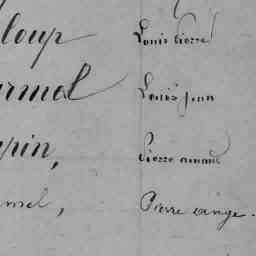 loup Louis Pierre
rmel Louis Jean
pin, Pierre amant
mel, Pierre ange.